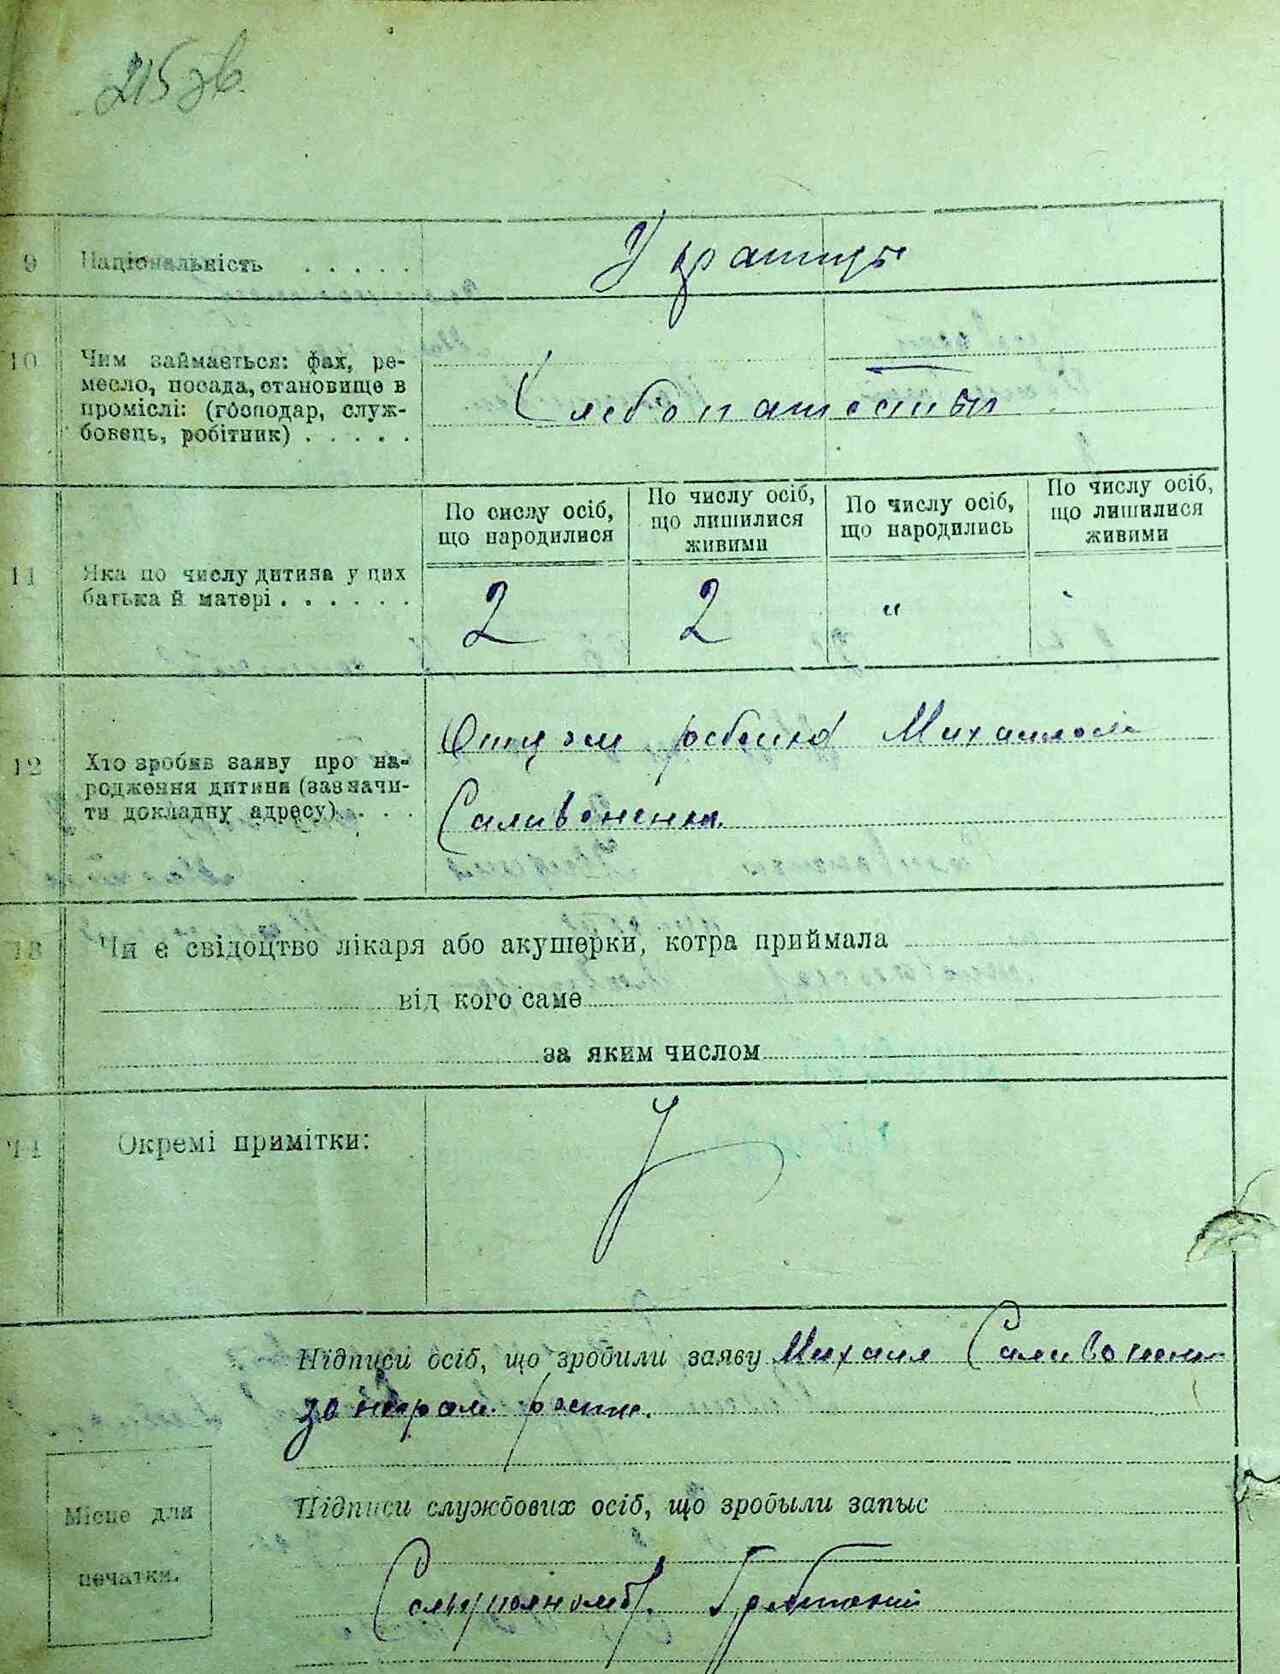 215 зв.
9 Національність . . . . .
Украинцы
10 Чим займається: фах, ре-
месло, посада, становище в
проміслі: (господар, служ-
бовець, робітник) . . . . .
Хлебопашествы
По сислу осіб,
що народилися
По числу осіб,
що лишилися
живими
По числу осіб,
що народились
По числу осіб,
що лишилися
живими
11 Яка по числу дитина у цих
батька й матері . . . . . .
2 2 "
12 Хто зробив заяву про на-
родження дитини (зазначи-
ти докладну адресу) . . . .
Отцом ребенка Михаилом
Саливоненко.
13 Чи є свідоцтво лікаря або акушерки, котра приймала
від кого саме
за яким числом
14 Окремі примітки:
Підписи осіб, що зробили заяву Михаил Саливонен
за неграм. распис.
Підписи службових осіб, що зробыли запыс
Місце для
печатки.